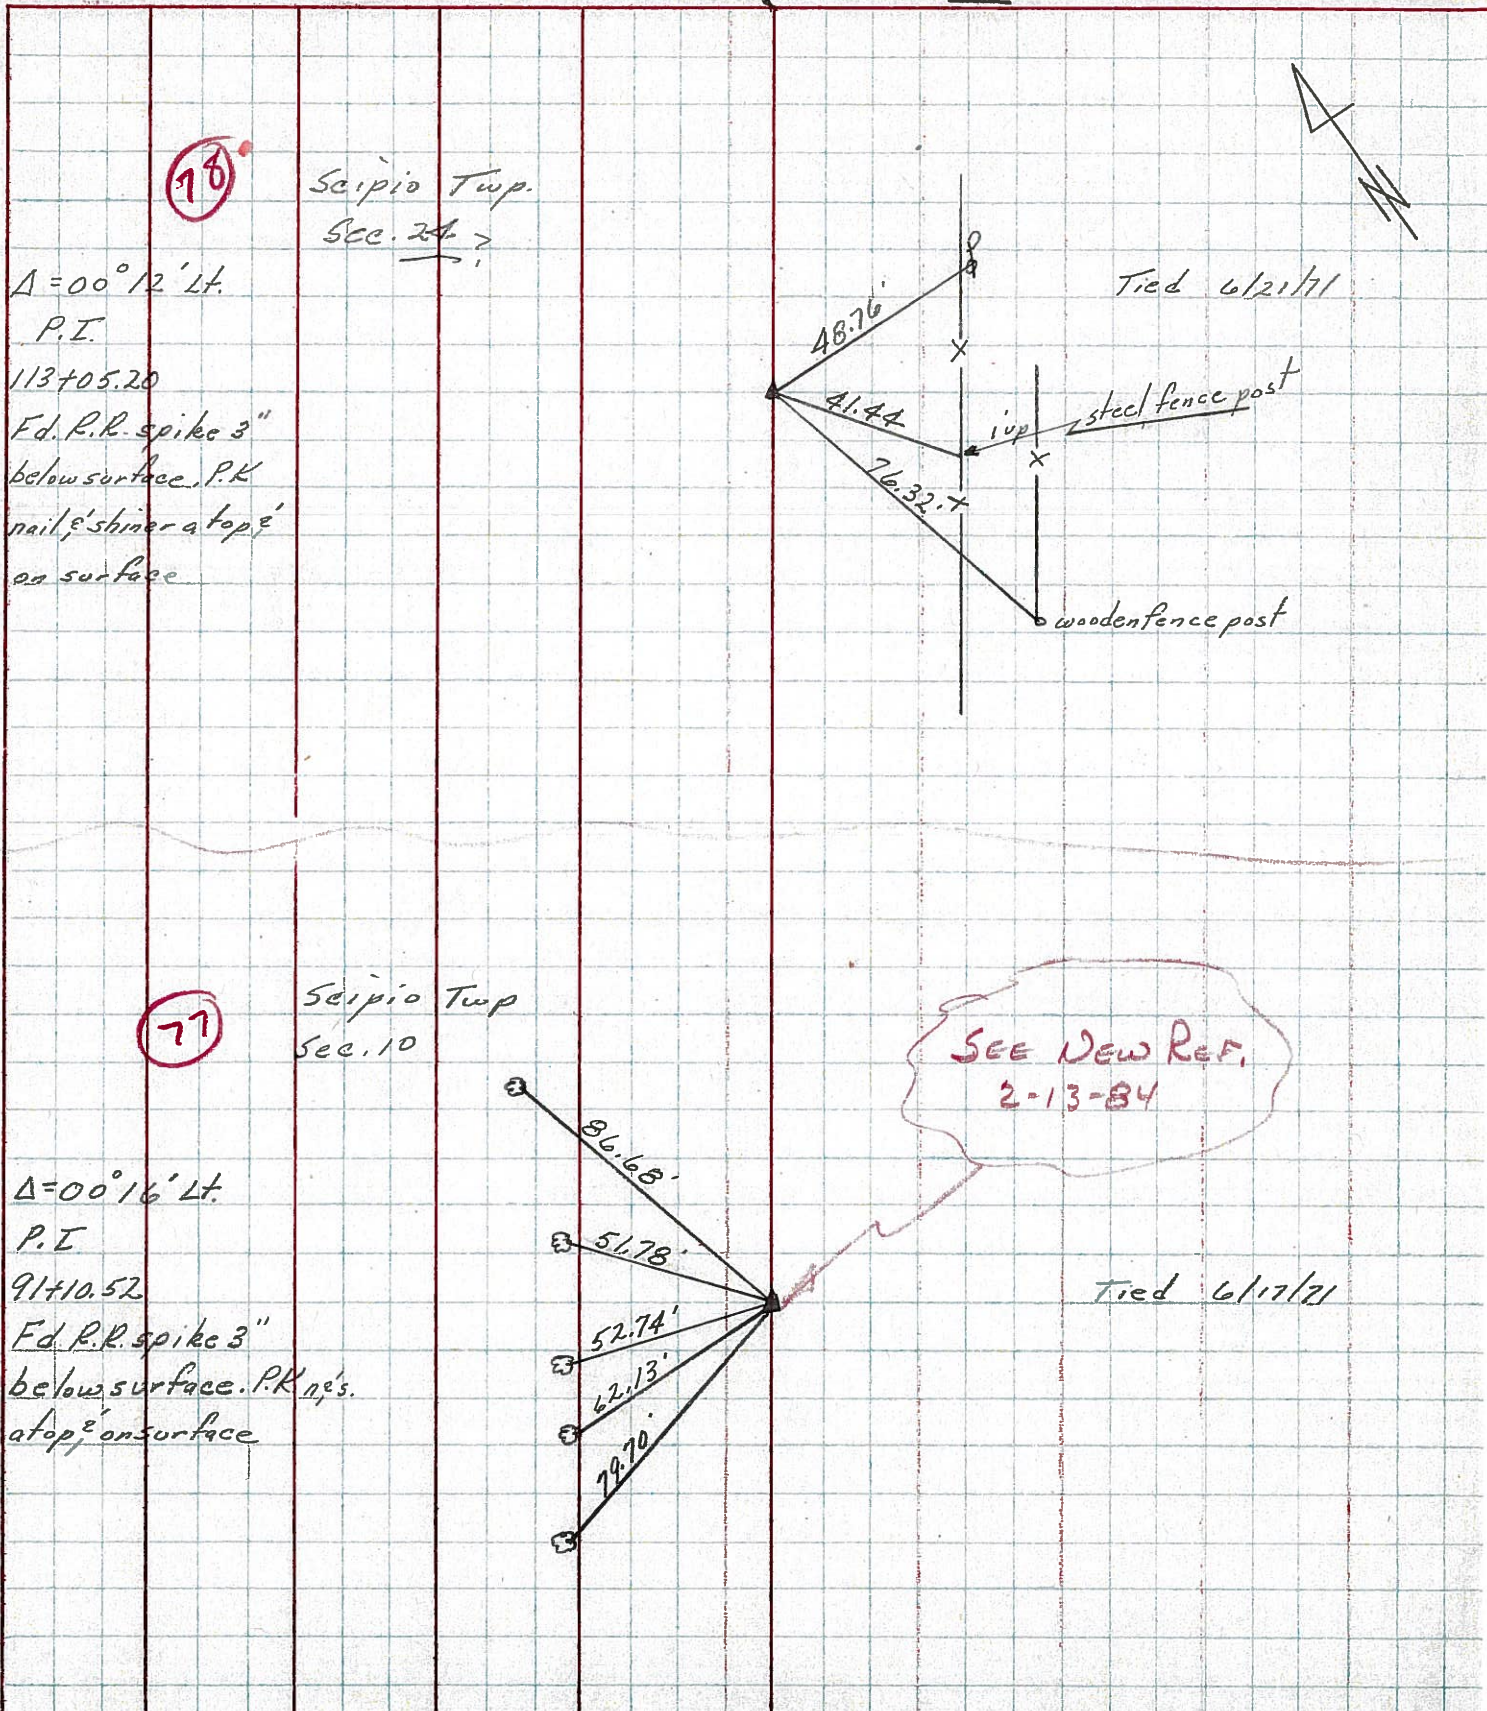 78
Scipio Twp.
Sec. 24 ?
Δ=00°12' Lt.
P.I.
113+05.20
Fd. R.R. spike 3"
below surface. P.K
nail, & shiner atop, &
on surface
N
Tied 6/21/71
48.76'
X
41.44
steel fence post
X
76.32'
X
wooden fence post
77
Scipio Twp
Sec. 10
SEE NEW REF.
2-13-84
Δ=00°16' Lt.
P.I
91+10.52
Fd R.R. spike 3"
below surface. P.K n,&s.
atop, & on surface
86.68'
51.78'
52.74'
62.13'
79.70'
Tied 6/17/71